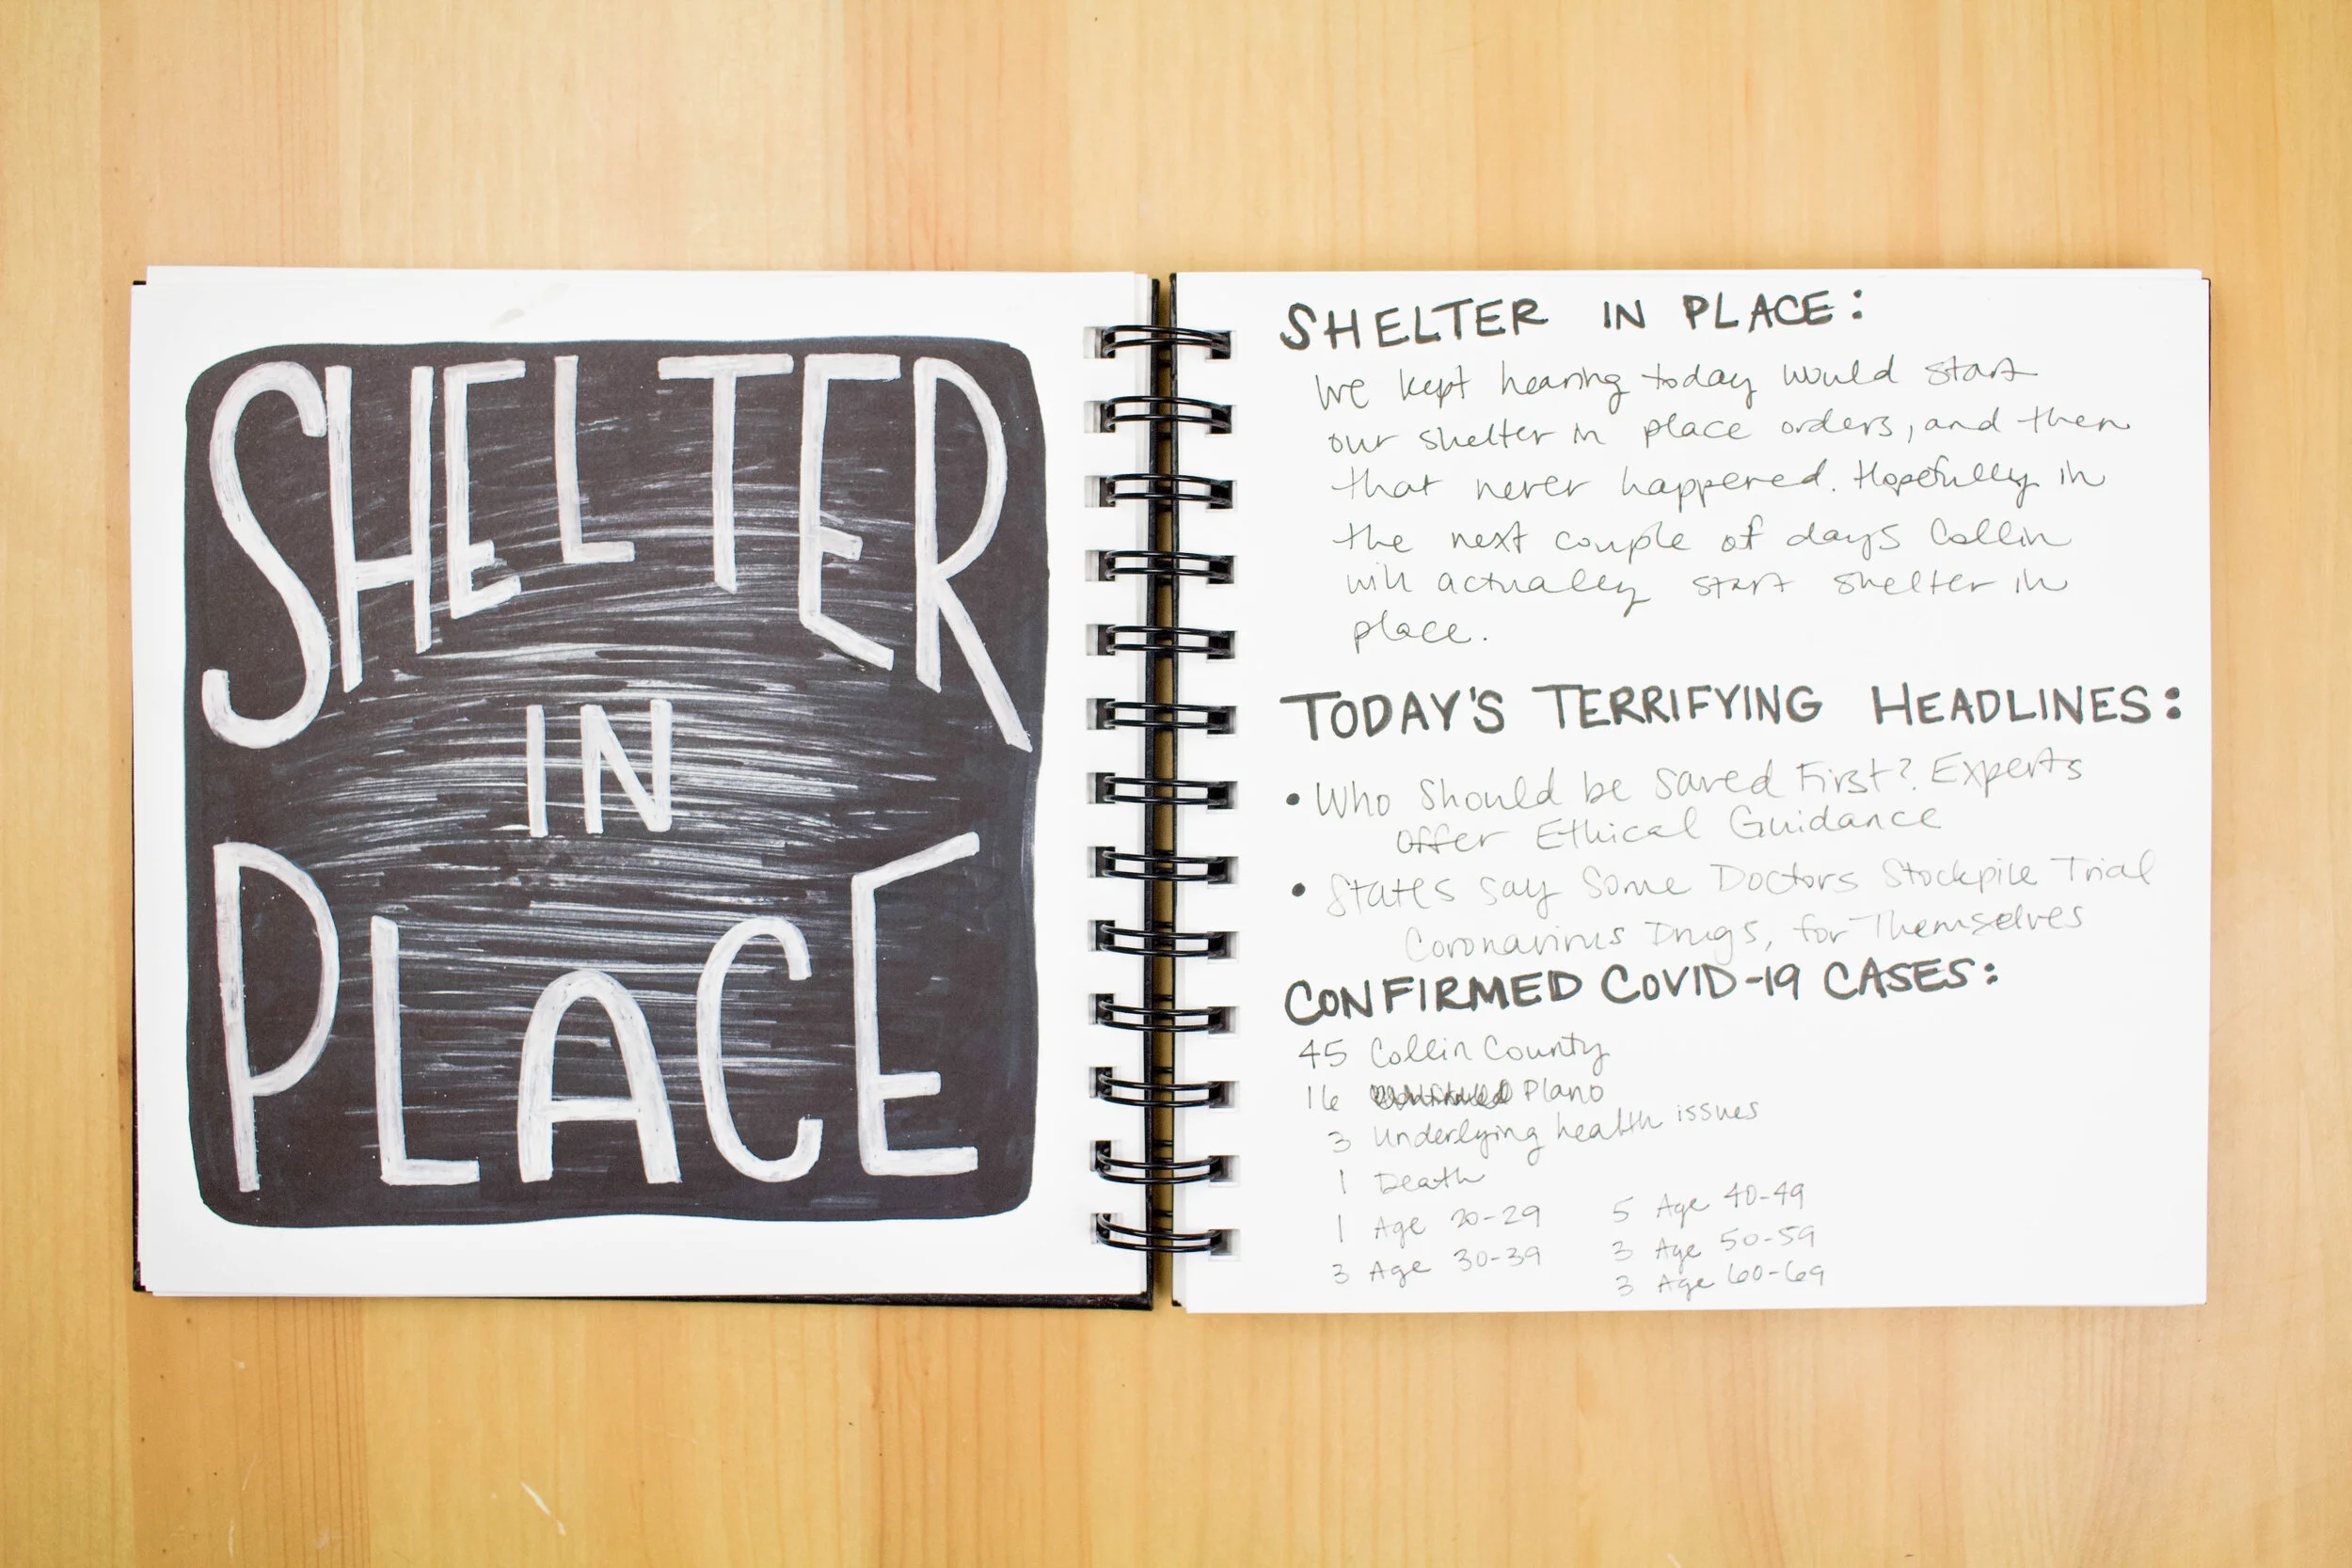 SHELTER
IN
PLACE
SHELTER IN PLACE:
We kept hearing today would start
our shelter in place orders, and then
that never happened. Hopefully in
the next couple of days Collin
will actually start shelter in
place.
TODAY'S TERRIFYING HEADLINES:
• Who Should be Saved First? Experts
Offer Ethical Guidance
• States Say Some Doctors Stockpile Trial
Coronavirus Drugs, for Themselves
CONFIRMED COVID-19 CASES:
45 Collin County
16 Plano
3 Underlying health issues
1 Death
1 Age 20-29 5 Age 40-49
3 Age 30-39 3 Age 50-59
3 Age 60-69